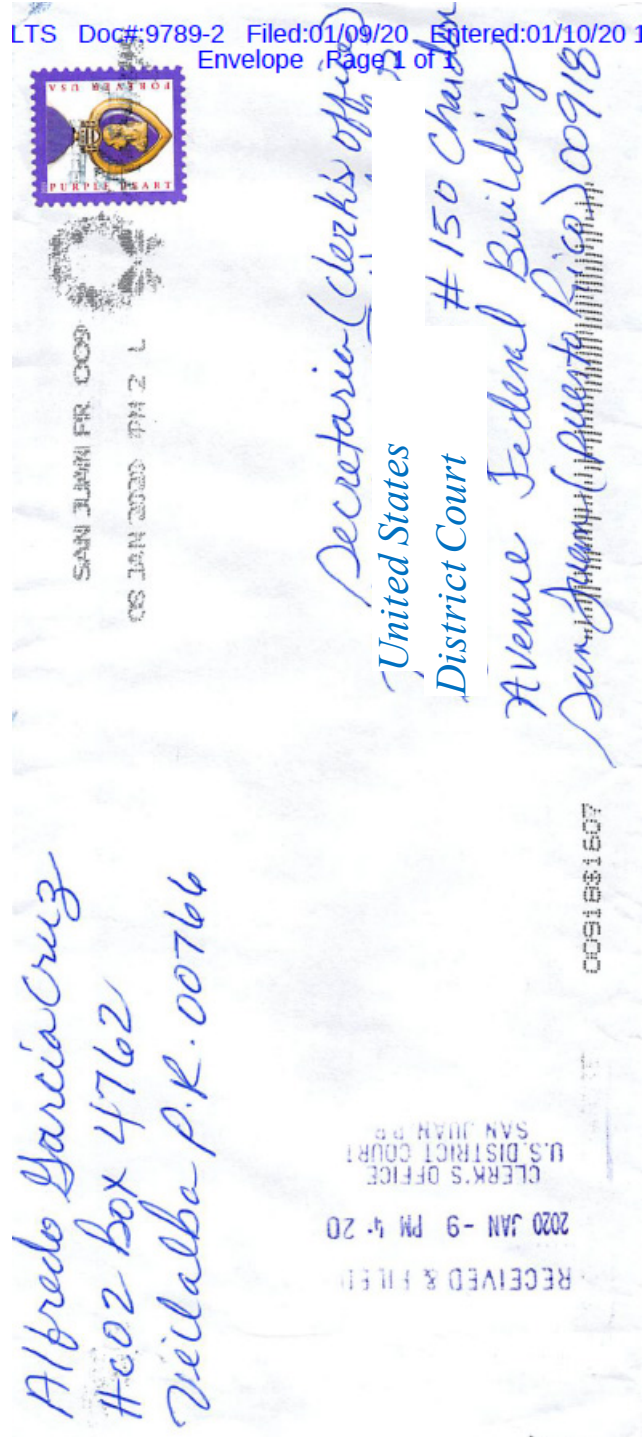 LTS Doc#:9789-2 Filed:01/09/20 Entered:01/10/20 1
Envelope Page 1 of 1
Alfredo Garcia Cruz
Hc02 Box 4762
Veillalba P.R. 00766
FOREVER USA
PURPLE HEART
SAN JUAN PR 009
08 JAN 2020 PM 2 L
Secretaria (clerks office)
United States
District Court
# 150 Chardon
Avenue Federal Building
San Juan (Puerto Rico) 00918
00918$1607
RECEIVED & FILED
2020 JAN -9 PM 4: 20
CLERK'S OFFICE
U.S. DISTRICT COURT
SAN JUAN P.R